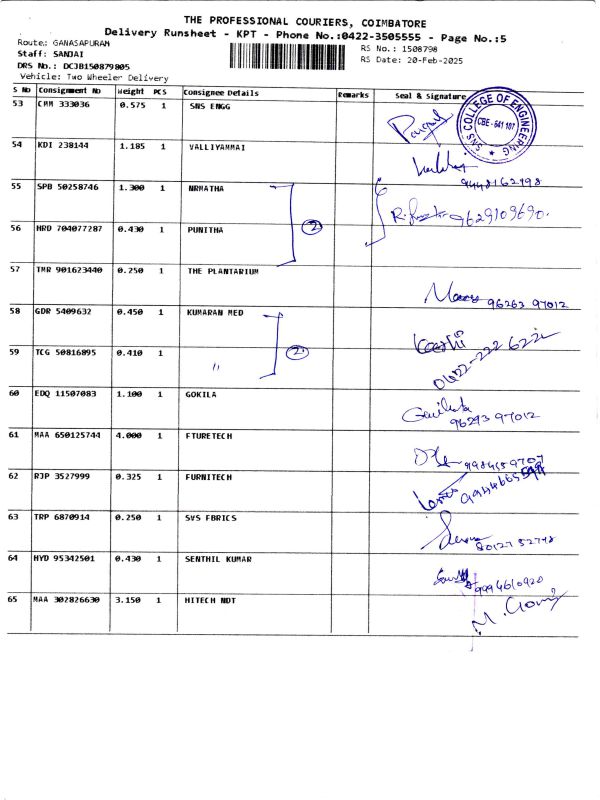 THE PROFESSIONAL COURIERS, COIMBATORE
Delivery Runsheet - KPT - Phone No.:0422-3505555 - Page No.:5
Route.: GANASAPURAM
RS No.: 1508798
Staff: SANJAI
RS Date: 20-Feb-2025
DRS No.: DCJB150879805
Vehicle: Two Wheeler Delivery
S No Consignment No Weight PCS Consignee Details Remarks Seal & Signature
53 CMM 333036 0.575 1 SNS ENGG
SNS COLLEGE OF ENGINEERING
CBE - 641 107
54 KDI 238144 1.185 1 VALLIYAMMAI
9448162498
55 SPB 50258746 1.300 1 NRMATHA
2 9629109690.
56 HRD 704077287 0.430 1 PUNITHA
57 TMR 901623440 0.250 1 THE PLANTARIUM
96263 97012
58 GDR 5409632 0.450 1 KUMARAN MED
2
59 TCG 50816895 0.410 1 "
0422-222 622
60 EDQ 11507083 1.100 1 GOKILA
96293 97012
61 MAA 650125744 4.000 1 FTURETECH
62 RJP 3527999 0.325 1 FURNITECH
63 TRP 6870914 0.250 1 SVS FBRICS
64 HYD 95342501 0.430 1 SENTHIL KUMAR
9994610920
65 MAA 302826630 3.150 1 HITECH NDT
M. Gowri